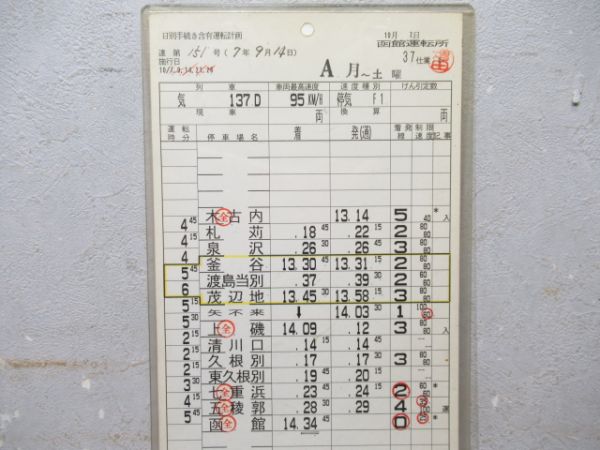 日別手続き含有運転計画
達 第 151 号 (7年9月14日)
施行日
10月 1日
函館運転所
37仕業
A 月~土 曜
列 車 車両最高速度 速度種別 けん引定数
気 137D 95KM/H 停気 F1
現 車 両 換 算 両
運転時分 停車場名 着 発(通) 着発線 制限速度 記事
木古内 全 13.14 5 40 * 入
4 45 札苅 .18 45 .22 15 2 80 80
4 15 泉沢 .26 30 .26 45 3 80 80
4 釜谷 13.30 45 13.31 15 2 80 80
5 45 渡島当別 .37 .39 30 2 80 60
6 茂辺地 13.45 30 13.58 15 3 80 80
5 15 矢不来 ↓ 14.03 30 1 100 60
5 30 上磯 全 14.09 .12 3 80 80
2 15 清川口 .14 15 .14 45
2 15 久根別 .17 .17 30 3
2 15 東久根別 .19 45 .20 15
3 30 七重浜 全 .23 45 .24 15 2 60 60 *
4 15 五稜郭 全 .28 30 .29 4 35 100 運
5 45 函館 全 14.34 45 0 25 *